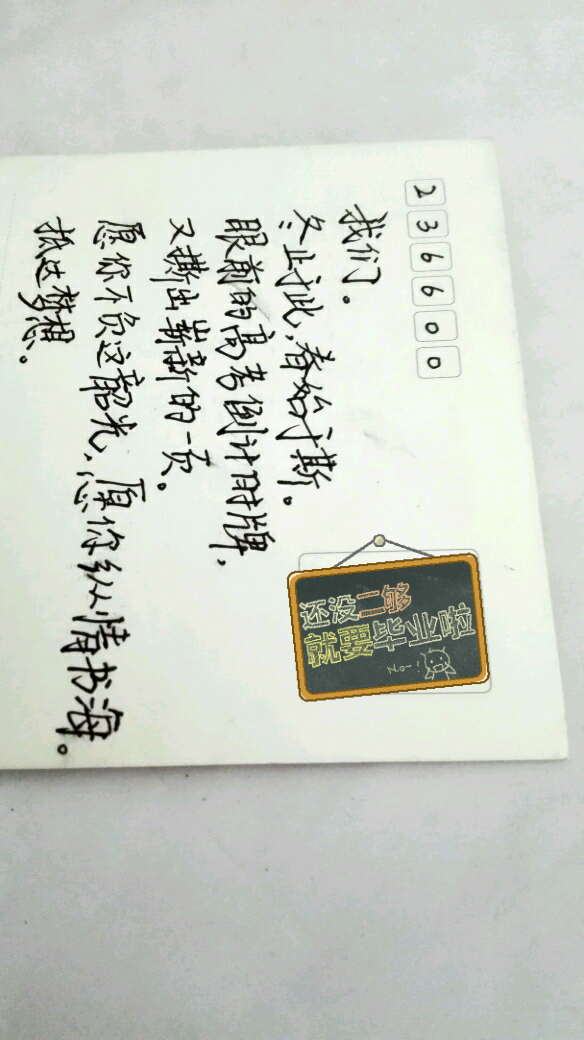 236600
我们。
冬止于此，春始于斯。
眼前的高考倒计时牌，
又撕出崭新的一页。
愿你不负这韶光，愿你纵情书海。
抵达梦想。
还没二够
就要毕业啦